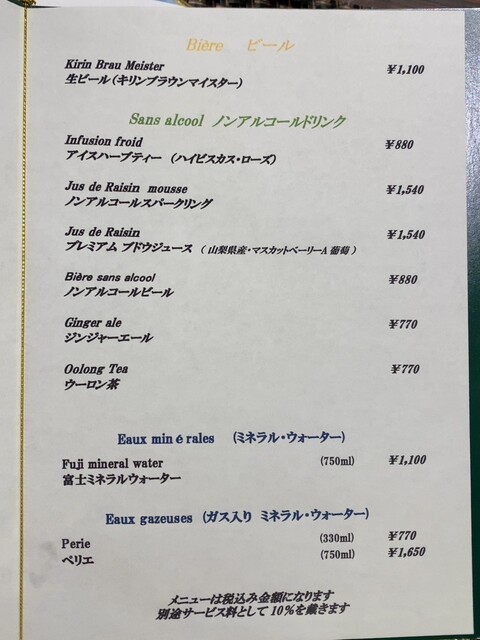 Bière ビール
Kirin Brau Meister ¥1,100
生ビール(キリンブラウンマイスター)
Sans alcool ノンアルコールドリンク
Infusion froid ¥880
アイスハーブティー (ハイビスカス・ローズ)
Jus de Raisin mousse ¥1,540
ノンアルコールスパークリング
Jus de Raisin ¥1,540
プレミアム ブドウジュース (山梨県産・マスカットベーリーA 葡萄)
Bière sans alcool ¥880
ノンアルコールビール
Ginger ale ¥770
ジンジャーエール
Oolong Tea ¥770
ウーロン茶
Eaux minérales (ミネラル・ウォーター)
Fuji mineral water (750ml) ¥1,100
富士ミネラルウォーター
Eaux gazeuses (ガス入り ミネラル・ウォーター)
Perie (330ml) ¥770
ペリエ (750ml) ¥1,650
メニューは税込み金額になります
別途サービス料として10%を戴きます